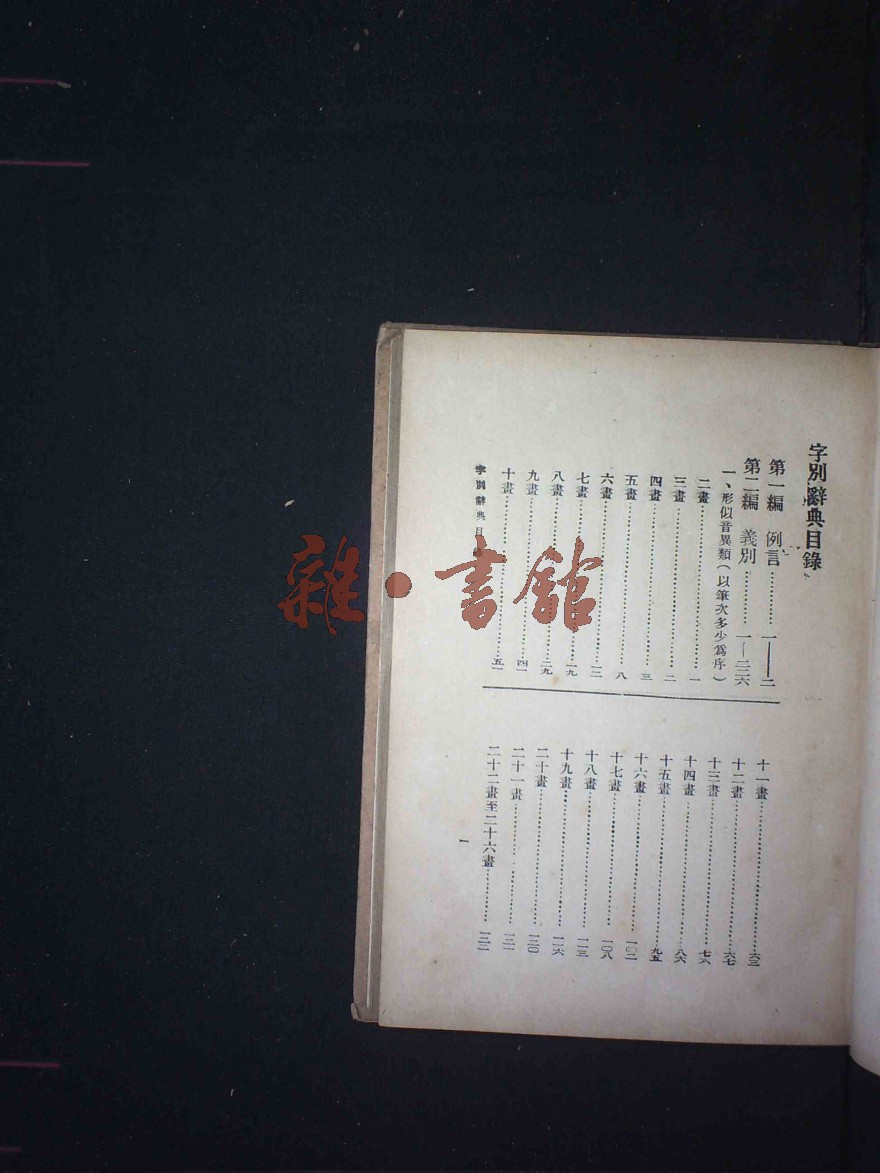 字別辭典目錄
第一編　例言…………一——二
第二編　義別…………一——二三六
一、形似音異類（以筆次多少爲序）
二畫…………一
三畫…………二
四畫…………三
五畫…………八
六畫…………一二
七畫…………一九
八畫…………二九
九畫…………四一
十畫…………五一
十一畫…………六三
十二畫…………六七
十三畫…………七六
十四畫…………八六
十五畫…………九五
十六畫…………一〇二
十七畫…………一〇八
十八畫…………一一三
十九畫…………一一六
二十畫…………一二〇
二十一畫…………一二一
二十二畫至二十六畫…………一二二
字別辭典目錄
一
雜・書館